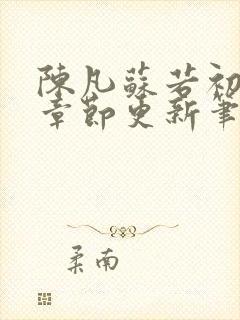 陳凡蘇若初
章節更新筆
柔南